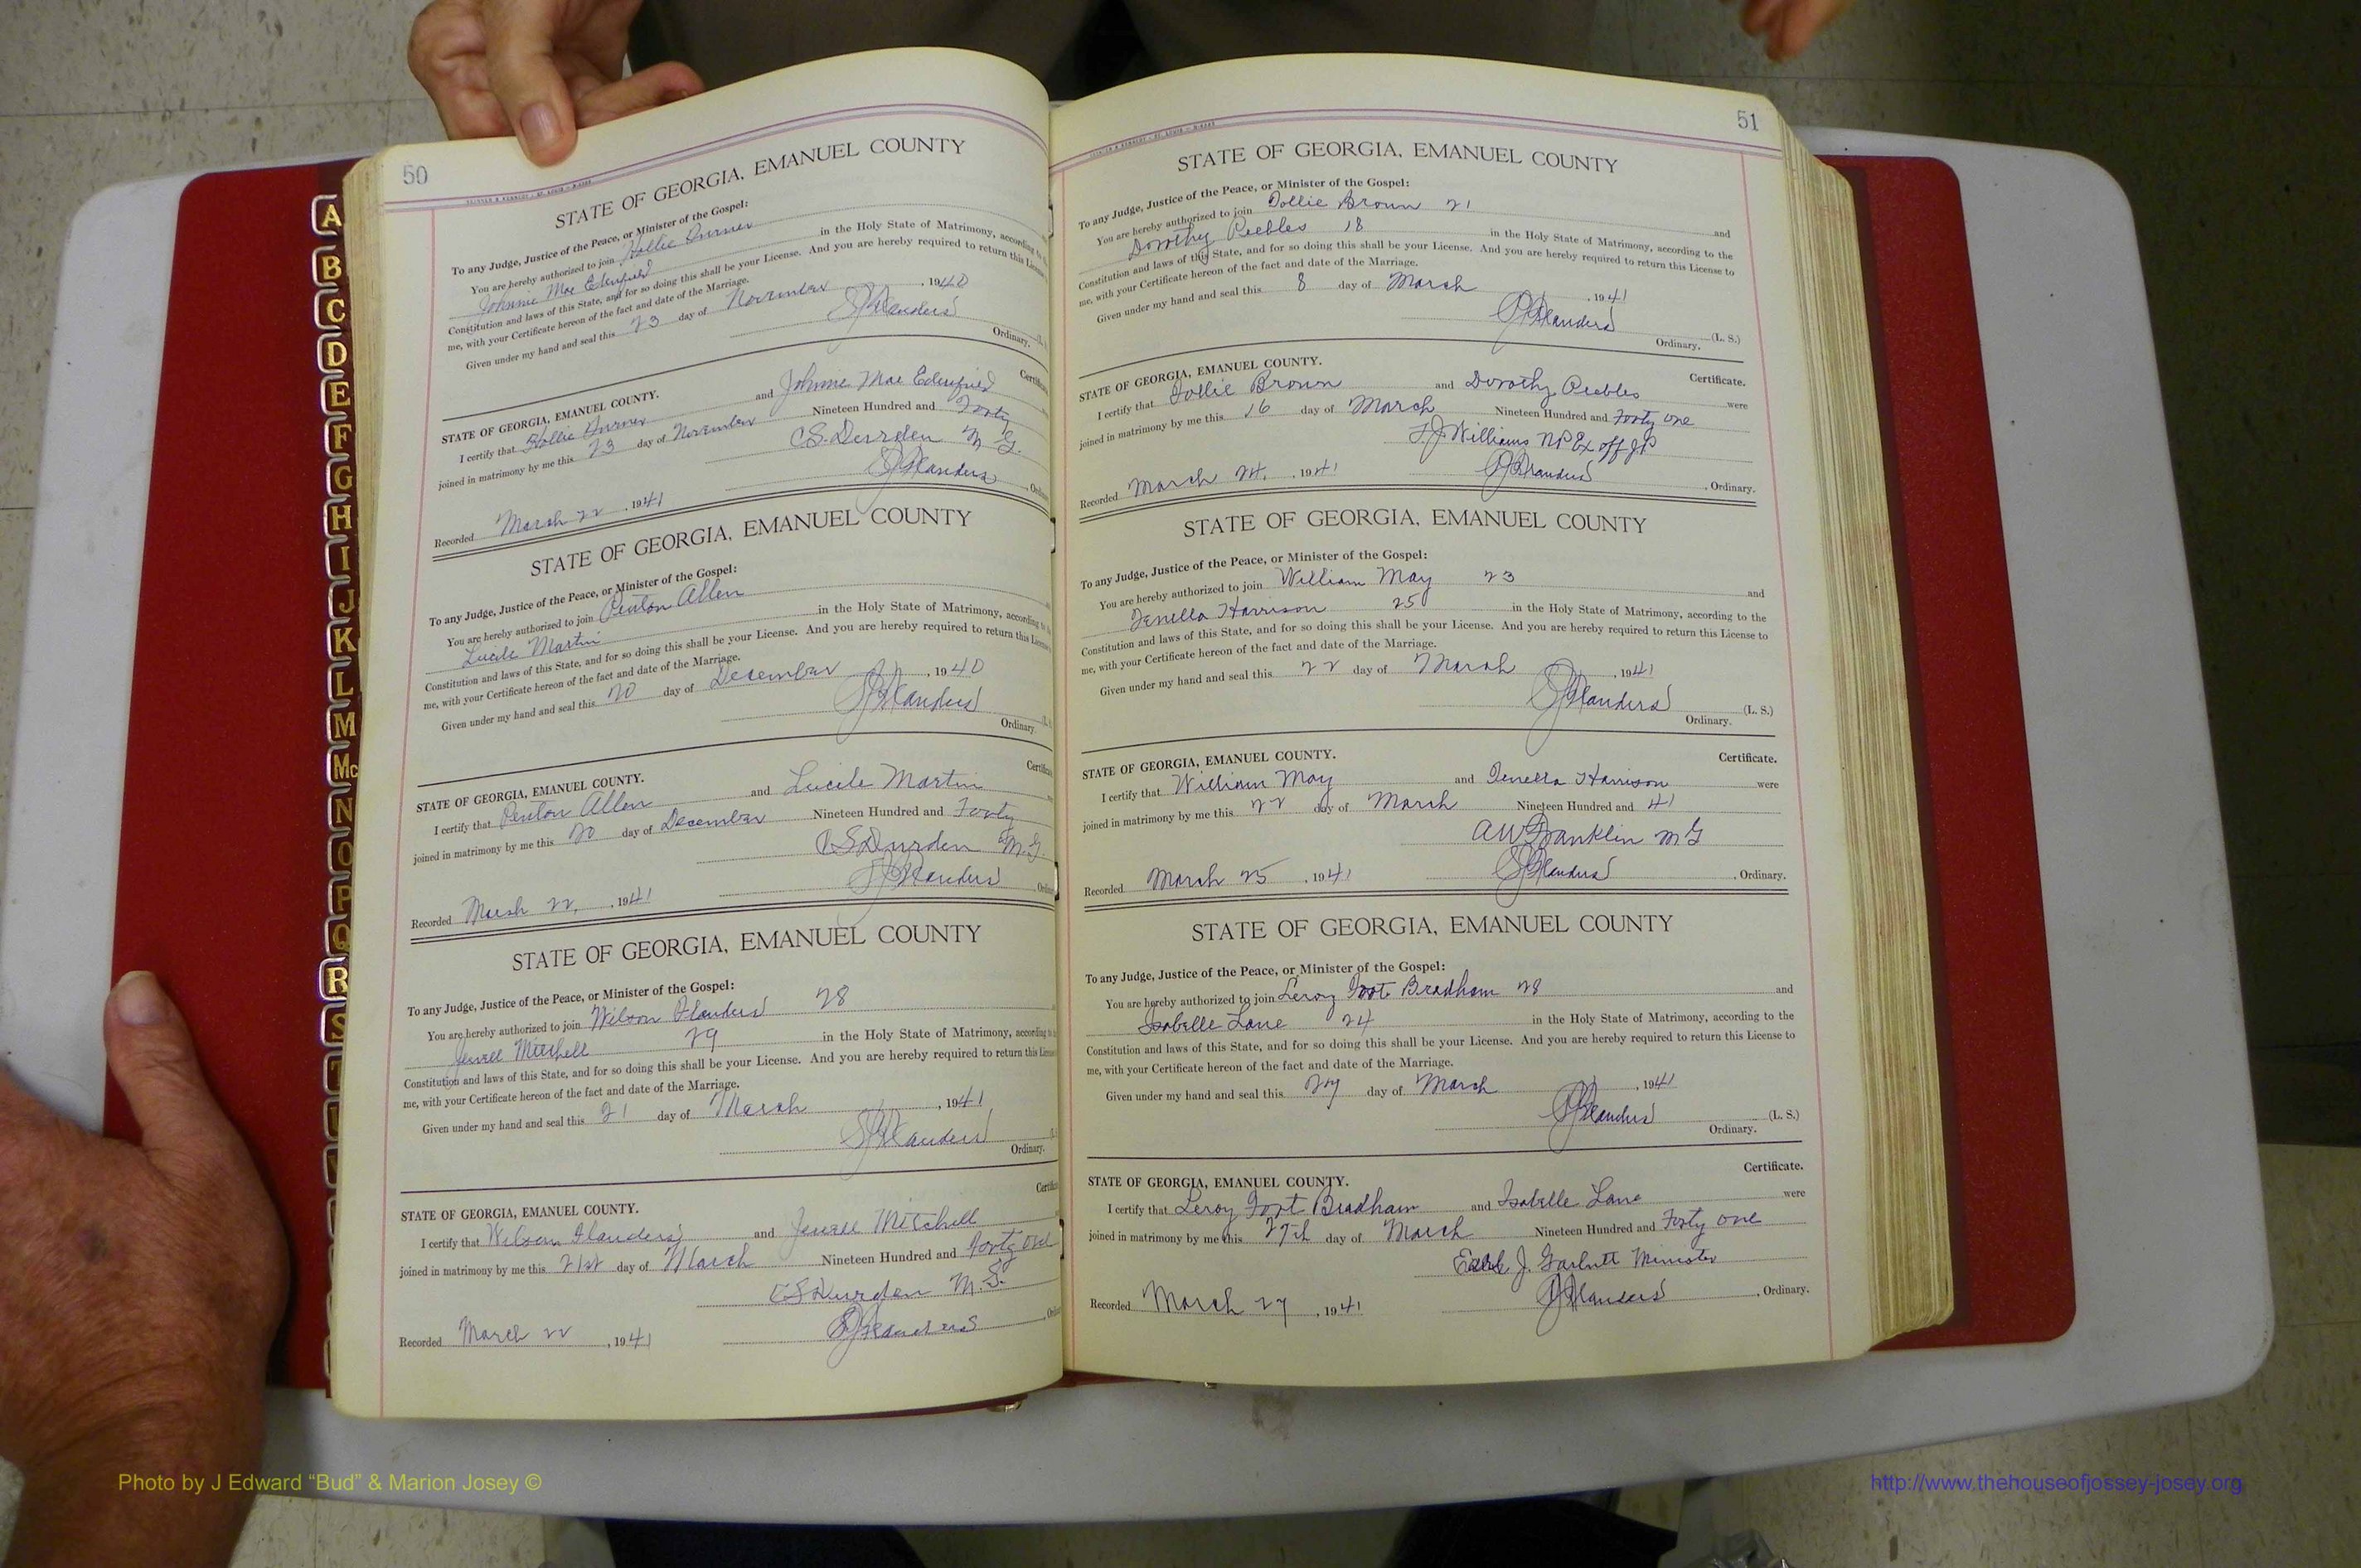 50
STATE OF GEORGIA, EMANUEL COUNTY
To any Judge, Justice of the Peace, or Minister of the Gospel:
You are hereby authorized to join Hollie
Johnnie Mae in the Holy State of Matrimony, according to
Constitution and laws of this State, and for so doing this shall be your License. And you are hereby required to return this License
me, with your Certificate hereon of the fact and date of the Marriage.
Given under my hand and seal this 23 day of November, 1940
Flanders
Ordinary.
Certificate
STATE OF GEORGIA, EMANUEL COUNTY.
I certify that Hollie and Johnnie Mae
joined in matrimony by me this 23 day of November Nineteen Hundred and Forty
C.S. Durden M.G.
Flanders
Recorded March 22, 1941
STATE OF GEORGIA, EMANUEL COUNTY
To any Judge, Justice of the Peace, or Minister of the Gospel:
You are hereby authorized to join Penton Allen
Lucile Martin in the Holy State of Matrimony, according to
Constitution and laws of this State, and for so doing this shall be your License. And you are hereby required to return this License
me, with your Certificate hereon of the fact and date of the Marriage.
Given under my hand and seal this 20 day of December, 1940
Flanders
Ordinary.
Certificate
STATE OF GEORGIA, EMANUEL COUNTY.
I certify that Penton Allen and Lucile Martin
joined in matrimony by me this 20 day of December Nineteen Hundred and Forty
C S Durden M.G.
Flanders
Recorded March 22, 1941
STATE OF GEORGIA, EMANUEL COUNTY
To any Judge, Justice of the Peace, or Minister of the Gospel:
You are hereby authorized to join Wilson Flanders 28
Jewell Mitchell 29 in the Holy State of Matrimony, according to
Constitution and laws of this State, and for so doing this shall be your License. And you are hereby required to return this License
me, with your Certificate hereon of the fact and date of the Marriage.
Given under my hand and seal this 21 day of March, 1941
Flanders
Ordinary.
STATE OF GEORGIA, EMANUEL COUNTY.
I certify that Wilson Flanders and Jewell Mitchell
joined in matrimony by me this 21st day of March Nineteen Hundred and Forty one
C S Durden M.G.
Flanders
Recorded March 22, 1941
51
STATE OF GEORGIA, EMANUEL COUNTY
To any Judge, Justice of the Peace, or Minister of the Gospel:
You are hereby authorized to join Dollie Brown 21 and
Dorothy Peebles 18 in the Holy State of Matrimony, according to the
Constitution and laws of this State, and for so doing this shall be your License. And you are hereby required to return this License to
me, with your Certificate hereon of the fact and date of the Marriage.
Given under my hand and seal this 8 day of March, 1941
Flanders (L. S.)
Ordinary.
Certificate.
STATE OF GEORGIA, EMANUEL COUNTY.
I certify that Dollie Brown and Dorothy Peebles were
joined in matrimony by me this 16 day of March Nineteen Hundred and Forty one
Williams NP Ex off JP
Recorded March 24, 1941 Flanders, Ordinary.
STATE OF GEORGIA, EMANUEL COUNTY
To any Judge, Justice of the Peace, or Minister of the Gospel:
You are hereby authorized to join William May 23 and
Harrison 25 in the Holy State of Matrimony, according to the
Constitution and laws of this State, and for so doing this shall be your License. And you are hereby required to return this License to
me, with your Certificate hereon of the fact and date of the Marriage.
Given under my hand and seal this 22 day of March, 1941
Flanders (L. S.)
Ordinary.
Certificate.
STATE OF GEORGIA, EMANUEL COUNTY.
I certify that William May and Harrison were
joined in matrimony by me this 22 day of March Nineteen Hundred and 41
A W Franklin M G
Recorded March 25, 1941 Flanders, Ordinary.
STATE OF GEORGIA, EMANUEL COUNTY
To any Judge, Justice of the Peace, or Minister of the Gospel:
You are hereby authorized to join Leroy Fort Bradham 28 and
Isabelle Lane 24 in the Holy State of Matrimony, according to the
Constitution and laws of this State, and for so doing this shall be your License. And you are hereby required to return this License to
me, with your Certificate hereon of the fact and date of the Marriage.
Given under my hand and seal this 27 day of March, 1941
Flanders (L. S.)
Ordinary.
Certificate.
STATE OF GEORGIA, EMANUEL COUNTY.
I certify that Leroy Fort Bradham and Isabelle Lane were
joined in matrimony by me this 27th day of March Nineteen Hundred and Forty one
J. Garbutt Minister
Recorded March 27, 1941 Flanders, Ordinary.
A
B
C
D
E
F
G
H
I
J
K
L
M
Mc
N
O
P
Q
R
S
T
Photo by J Edward “Bud” & Marion Josey ©
http://www.thehouseofjossey-josey.org